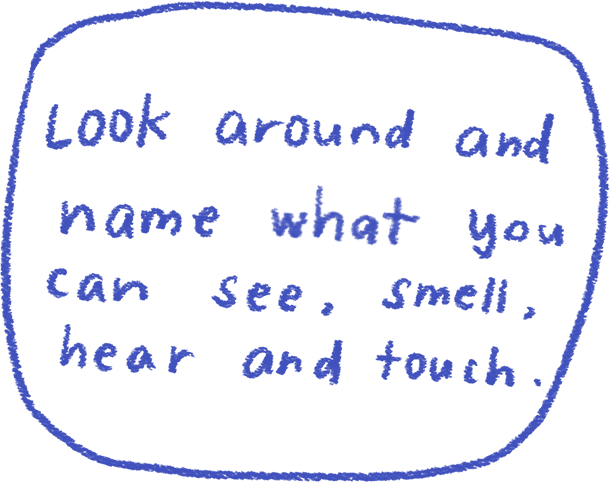 Look around and
name what you
can see, smell,
hear and touch.